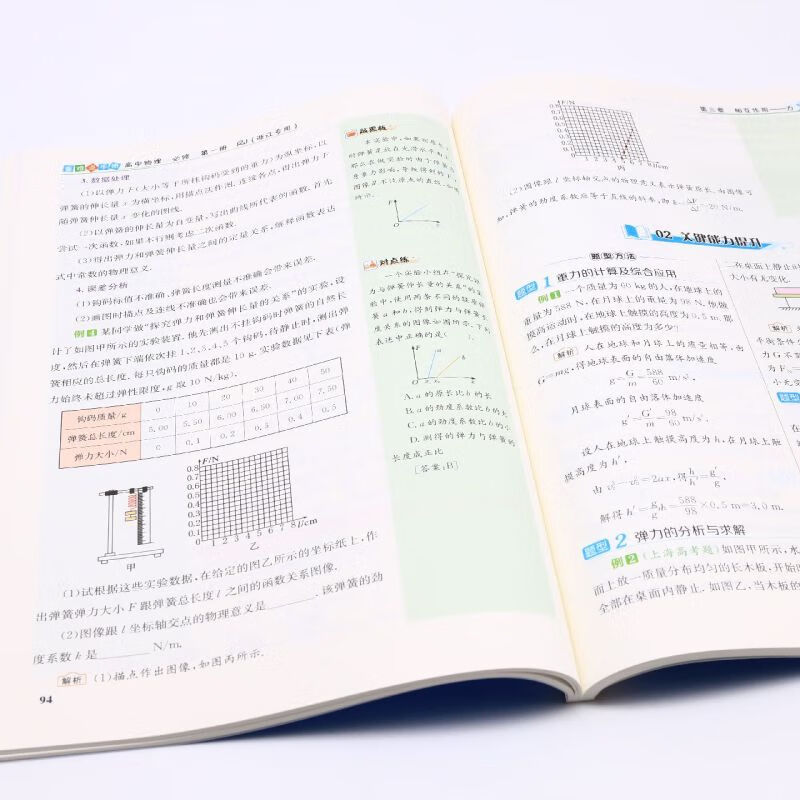 高中物理 必修 第一册 RJ(浙江专用)
3. 数据处理
(1)以弹力F(大小等于所挂钩码受到的重力)为纵坐标,以
弹簧的伸长量x为横坐标,用描点法作图,连接各点,得出弹力F
随弹簧伸长量x变化的图线.
(2)以弹簧的伸长量为自变量,写出图线所代表的函数.首先
尝试一次函数,如果不行则考虑二次函数.
(3)得出弹力和弹簧伸长量之间的定量关系,解释函数表达
式中常数的物理意义.
4. 误差分析
(1)钩码标值不准确、弹簧长度测量不准确会带来误差.
(2)画图时描点及连线不准确也会带来误差.
例4 某同学做“探究弹力和弹簧伸长量的关系”的实验,设
计了如图甲所示的实验装置.他先测出不挂钩码时弹簧的自然长
度,然后在弹簧下端依次挂1、2、3、4、5个钩码,待静止时,测出弹
簧相应的总长度.每只钩码的质量都是10 g.实验数据见下表(弹
力始终未超过弹性限度,g取10 N/kg).
钩码质量/g 0 10 20 30 40 50
弹簧总长度/cm 5.00 5.50 6.00 6.50 7.00 7.50
弹力大小/N 0 0.1 0.2 0.3 0.4 0.5
F/N
0.8
0.7
0.6
0.5
0.4
0.3
0.2
0.1
0 1 2 3 4 5 6 7 8 l/cm
甲
乙
(1)试根据这些实验数据,在给定的图乙所示的坐标纸上,作
出弹簧弹力大小F跟弹簧总长度l之间的函数关系图像.
(2)图像跟l坐标轴交点的物理意义是______.该弹簧的劲
度系数k是______N/m.
解析 (1)描点作出图像,如图丙所示.
94
敲黑板
对点练
一个实验小组在“探究弹
力与弹簧伸长量的关系”的实
验中,使用两条不同的轻质弹
簧a和b,得到弹力与弹簧长
度关系的图像如图所示.下列
表述中正确的是( )
A.a的原长比b的长
B.a的劲度系数比b的大
C.a的劲度系数比b的小
D.测得的弹力与弹簧的
长度成正比
[答案:B]
第三章 相互作用——力
F/N
丙
(2)图像跟l坐标轴交点的物理意义是弹簧原长.由图像可
知,弹簧的劲度系数应等于直线的斜率,即k=ΔF/Δx=20 N/m.
02 关键能力提升
题型方法
题型1 重力的计算及综合应用
例1 一个质量为60 kg的人,在地球上的
重量为588 N,在月球上的重量为98 N,他做
摸高运动时,在地球上触摸的高度为0.5 m,那
么,在月球上触摸的高度为多少?
解析 人在地球和月球上的质量相等,由
G=mg,得地球表面的自由落体加速度
g=G/m=588/60 m/s²,
月球表面的自由落体加速度
g′=G′/m=98/60 m/s².
设人在地球上触摸高度为h,在月球上触
摸高度为h′,
由v_t²-v_0²=2ax,得h/h′=g′/g,
解得h′=g/g′h=588/98×0.5 m=3.0 m.
题型2 弹力的分析与求解
例2 (上海高考题)如图甲所示,水
面上放一质量分布均匀的长木板,开始
全部在桌面内静止.如图乙,当木板的